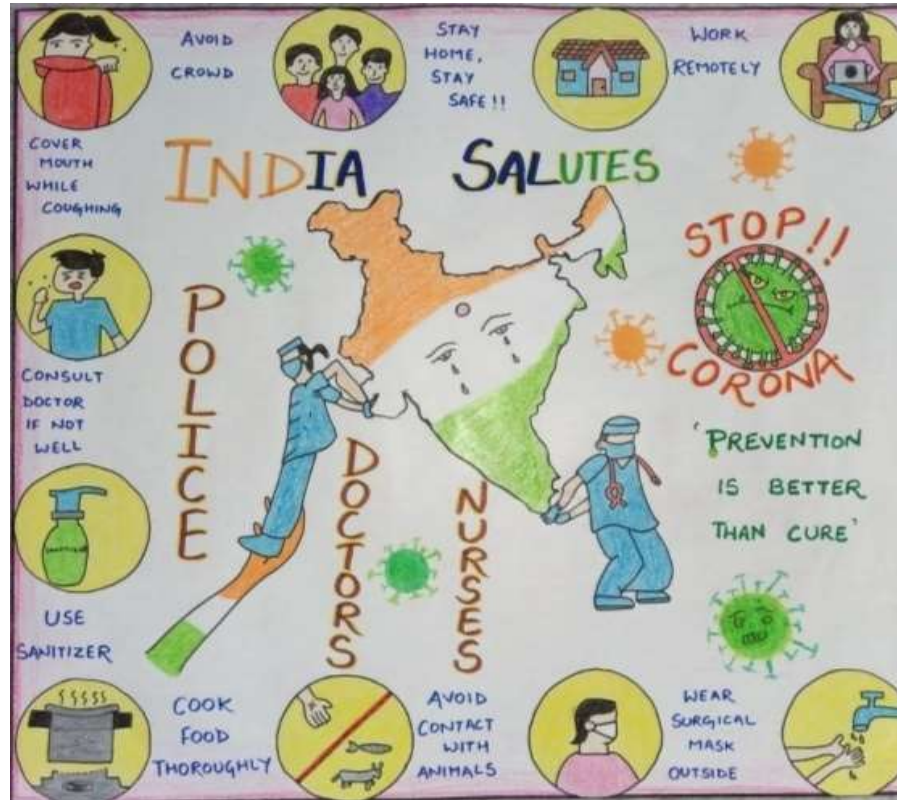 AVOID
CROWD
STAY
HOME,
STAY
SAFE !!
WORK
REMOTELY
COVER
MOUTH
WHILE
COUGHING
INDIA SALUTES
STOP!!
CORONA
POLICE
CONSULT
DOCTOR
IF NOT
WELL
DOCTORS
NURSES
'PREVENTION
IS BETTER
THAN CURE'
USE
SANITIZER
COOK
FOOD
THOROUGHLY
AVOID
CONTACT
WITH
ANIMALS
WEAR
SURGICAL
MASK
OUTSIDE